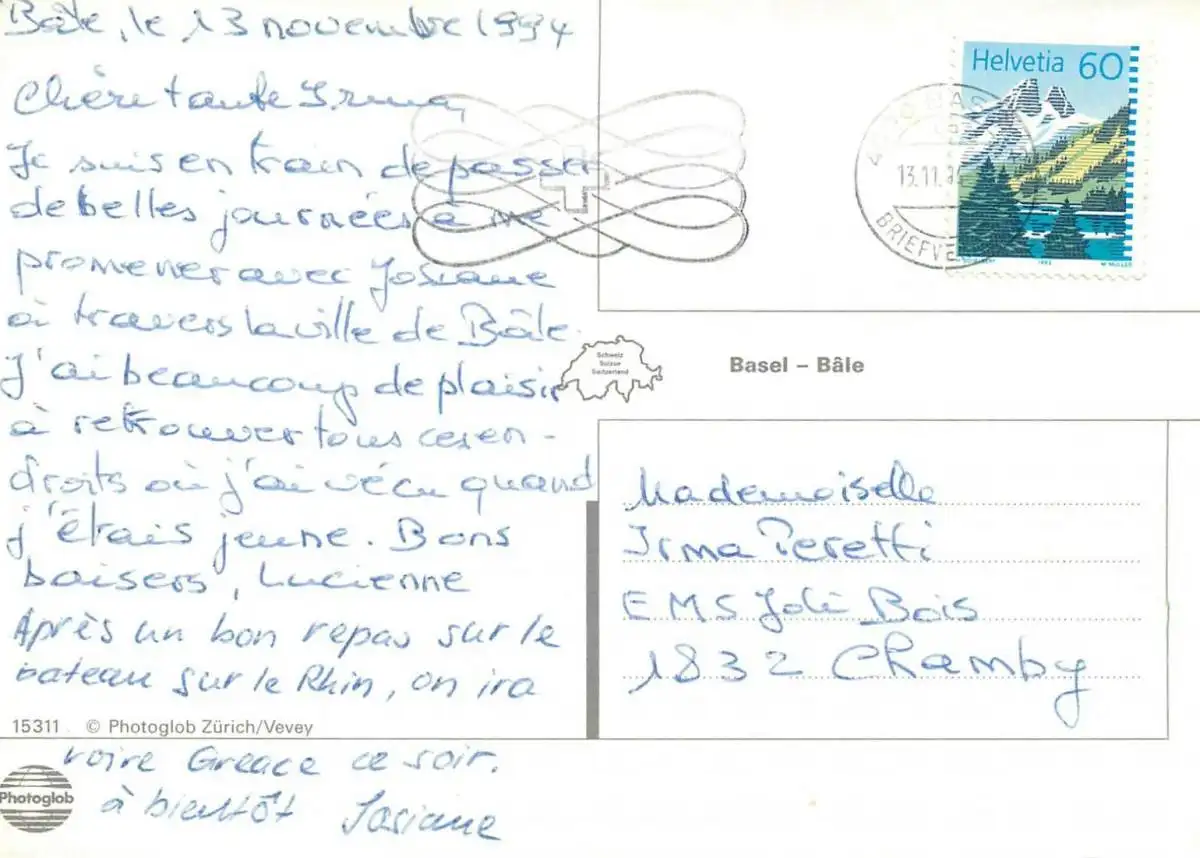 Bâle, le 13 novembre 1994
Chère tante Irma,
Je suis en train de passer
de belles journées à me
promener avec Josiane
à travers la ville de Bâle.
J'ai beaucoup de plaisir
à retrouver tous ces en-
droits où j'ai vécu quand
j'étais jeune. Bons
baisers, Lucienne
Après un bon repas sur le
bateau sur le Rhin, on ira
voire Greace ce soir.
à bientôt Josiane
15311 © Photoglob Zürich/Vevey
Photoglob
Helvetia 60
1993
BAS
13.11.94
BRIEFVE
Schweiz
Suisse
Switzerland
Basel – Bâle
Mademoiselle
Irma Peretti
EMS Joli Bois
1832 Chamby